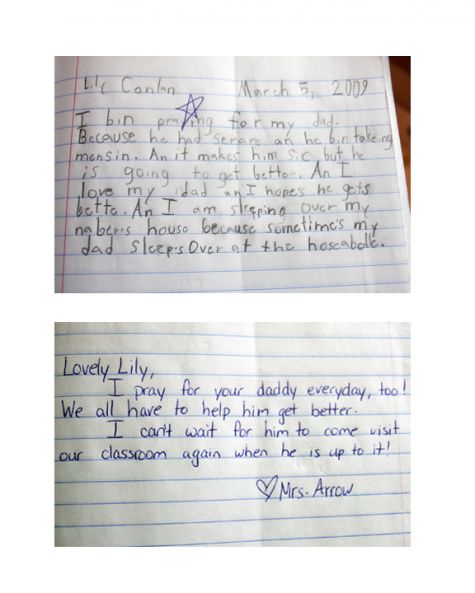 Lily Conlan March 5, 2009
I bin praying for my dad.
Because he had serare an he bin takeing
mensin. An it makes him sic but he
is going to get better. An I
love my dad an I hope's he gets
bette. An I am sleeping over my
naber's house because sometime's my
dad sleep's over at the hoscabdle.
Lovely Lily,
I pray for your daddy everyday, too!
We all have to help him get better.
I can't wait for him to come visit
our classroom again when he is up to it!
Mrs. Arrow